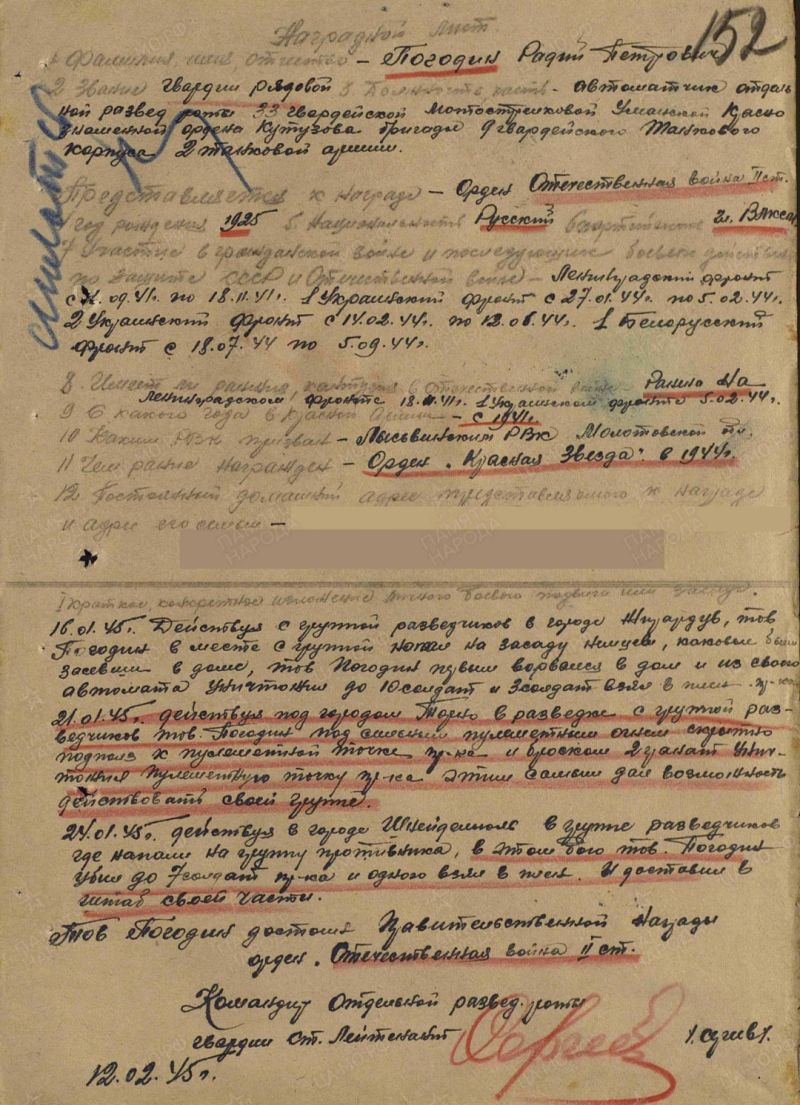 152
Наградной лист
1 Фамилия, имя отчество – Погодин Радий Петрович
2 Звание гвардии рядовой 3 Должность часть - автоматчик отдель
ной развед роты 33 гвардейской Мотострелковой Уманской Красно
знаменной ордена Кутузова бригады 9 гвардейского Танкового
корпуса 2 танковой армии.
Представляется к награде – Орден Отечественная война II ст.
год рождения 1925 5 Национальность Русский 6 партийность чл. ВЛКСМ
7 Участие в гражданской войне и последующих боевых действиях
по защите СССР и Отечественной войне – Ленинградский фронт
с 09.41г. по 18.11.41г. 1 Украинский фронт с 27.01.44г. по 5.02.44г.
2 Украинский фронт с 14.02.44г. по 12.06.44г. 1 Белорусский
фронт с 18.07.44 по 5.09.44г.
8 Имеет ли ранения, контузия в отечественной войне – Ранено На
Ленинградском фронте 18.11.41г. 1 Украинском фронте 5.02.44г.
9 С какого года в Красной Армии – с 1941г.
10 Каким РВК призван – Лысьвинским РВК Молотовской
11 Чем ранее награжден – Орден „Красная Звезда" в 1944г.
12 Постоянный домашний адрес представляемого к награде
и адрес его семьи –
I краткое, конкретное изложение личного боевого подвига или заслуг.
16.01.45г. Действуя с группой разведчиков в городе тов
Погодин в месте с группой на засаду немцев, каковые были
засевши в доме, тов Погодин первым ворвался в дом и из своего
автомата уничтожил до 10 солдат и 3 солдат взял в плен пр-ка
21.01.45г. действуя под городом в разведке с группой раз-
ведчиков тов. Погодин под сильным пулеметным огнем скрытно
подполз к пулеметной точке пр-ка и броском 2 гранат унич-
тожил пулеметную точку пр-ка этим самым дал возможность
действовать своей группе.
24.01.45г. действуя в городе Шнейдемюль в группе разведчиков
где напали на группу противника, в этом бою тов. Погодин
убил до 7 солдат пр-ка и одного взял в плен. И доставил в
штаб своей части.
Тов Погодин достоин Правительственной Награды
орден „Отечественная война II ст.
Командир Отдельной развед. роты
гвардии ст. Лейтенант
12.02.45г.